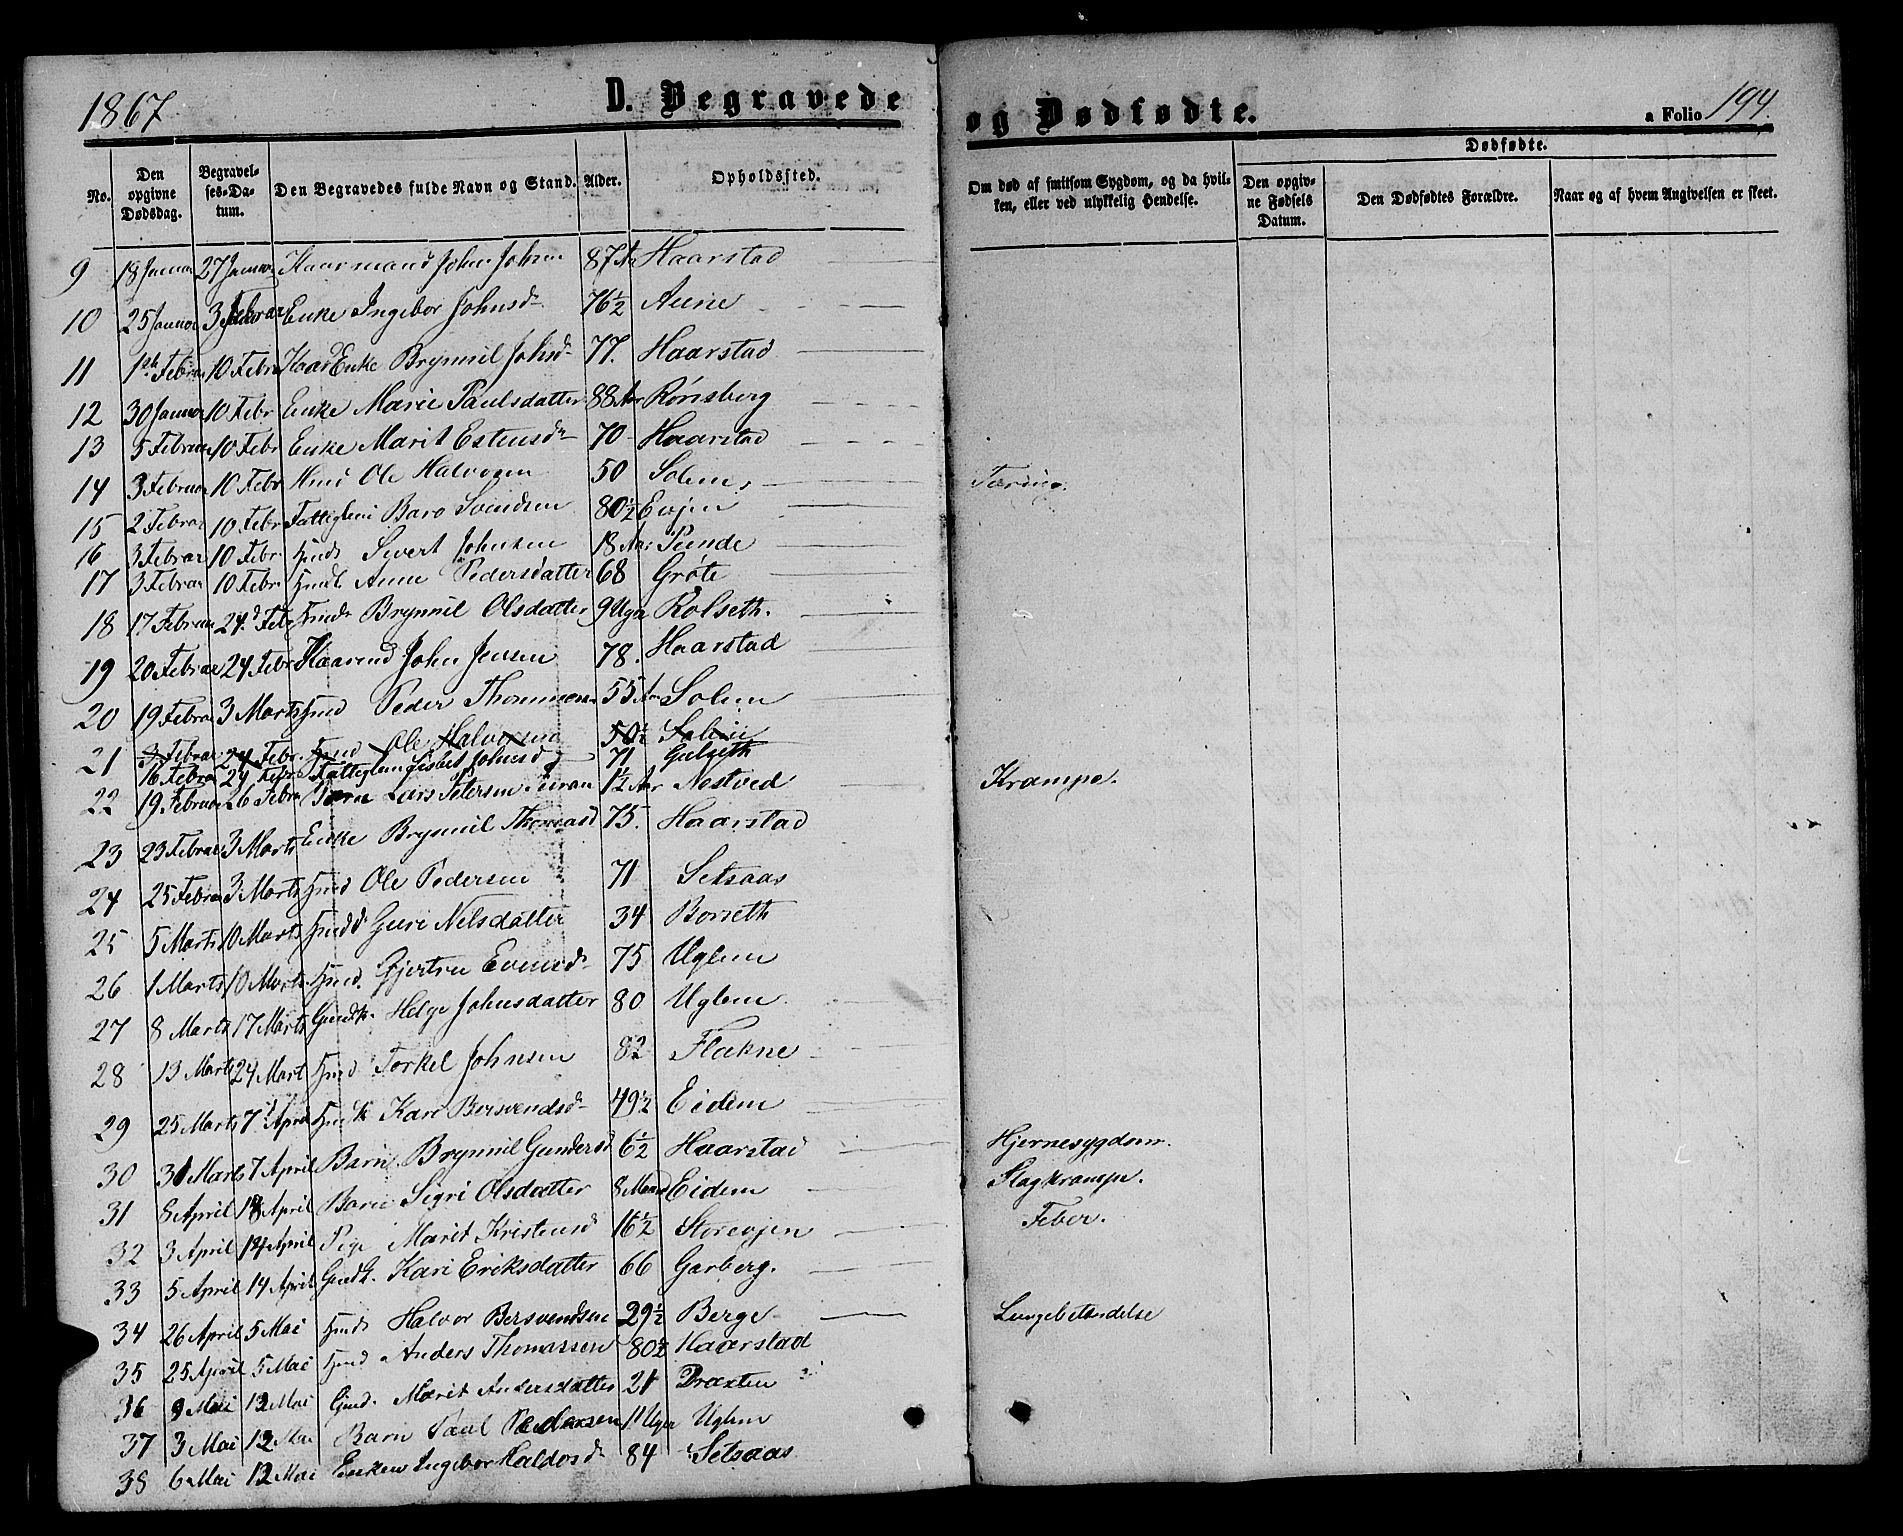 1867
D. Begravede og Dødfødte.
a Folio 194.
No.
Den opgivne Dødsdag.
Begravelses-Datum.
Den Begravedes fulde Navn og Stand.
Alder.
Opholdssted.
Om død af smitsom Sygdom, og da hvilken, eller ved ulykkelig Hendelse.
Dødfødte.
Den opgivne Fødsels Datum.
Den Dødfødtes Forældre.
Naar og af hvem Angivelsen er skeet.
9 18 Januar 27 Januar Kaarmand John Johnsen 87 Aar Haarstad
10 25 Januar 3 Februar Enke Ingebor Johnsd 76½ Aune
11 1ste Februar 10 Febr Kaar Enke Brynnil Johnsd 77. Haarstad
12 30 Januar 10 Febr Enke Marie Paulsdatter 88 Aar Rønsberg
13 5 Februar 10 Febr Enke Marit Estensd 70 Haarstad
14 3 Februar 10 Febr Hmd Ole Halvorsen 50 Solem Tæring.
15 2 Februar 10 Febr Fattiglem Baro Svendsen 80½ Evjen
16 3 Februar 10 Febr Sivert Johnsen 18 Aar Punde
17 3 Februar 10 Febr Anne Pedersdatter 68 Grøte
18 17 Februar 24 Febr Brynnil Olsdatter 9 Uger Rolseth.
19 20 Februar 24 Febr Kaarmd John Jensen 78. Haarstad
20 19 Februar 3 Marts Hmd Peder Thommesen 55 Aar Solem
21 3 Februar 24 Febr. Hmd Ole Halvorsen 50½ Solem
16 Februar 24 Febr Fattiglem Johnsd 71 Gulseth
22 19 Februar 26 Febr Barn Lars Petersen 1½ Aar Nestvед Krampe.
23 23 Februar 3 Marts Enke Brynnil Thomasd 75. Haarstad
24 25 Februar 3 Marts Hmd Ole Pedersen 71 Setsaas
25 5 Marts 10 Marts Guri Nelsdatter 34 Borseth
26 1 Marts 10 Marts Gjertru Evensd 75 Uglem
27 8 Marts 17 Marts Helge Johnsdatter 80 Uglem
28 13 Marts 24 Mart Torkel Johnsen 82 Flakne
29 25 Marts 7 April Kari Bersvendsd 49½ Eidem
30 31 Marts 7 April Barn Brynnil Gundersd 6½ Haarstad Hjernesygdom.
31 8 April 18 April Barn Sigri Olsdatter 8 Maand Eidem Slagkrampe.
32 3 April 14 April Pige Marit Kristensd 16½ Storevjen Feber.
33 5 April 14 April Kari Eriksdatter 66 Garberg.
34 26 April 5 Mai Halvor Bersvendsen 29½ Berge Lungebetændelse
35 25 April 5 Mai Anders Thomassen 80½ Haarstad
36 9 Mai 12 Mai Marit Andersdatter 21 Draxten
37 3 Mai 12 Mai Barn Paul Pedersen 11 Uger Uglem
38 6 Mai 12 Mai Enken Ingebor Haldosd 84 Setsaas